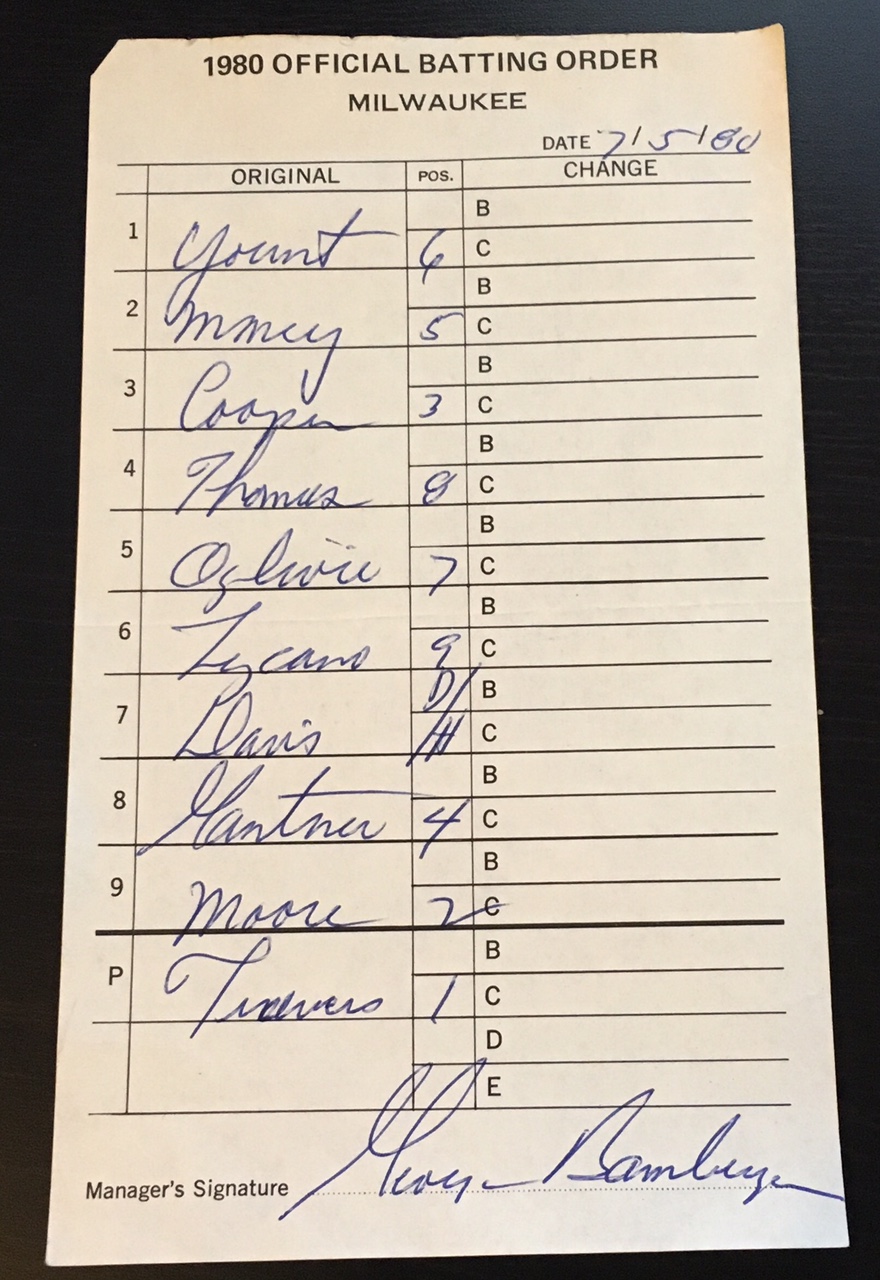 1980 OFFICIAL BATTING ORDER
MILWAUKEE
DATE 7/5/80
ORIGINAL POS. CHANGE
B
1 Yount 6 C
B
2 Money 5 C
B
3 Cooper 3 C
B
4 Thomas 8 C
B
5 Oglivie 7 C
B
6 Lezcano 9 C
D/ B
7 Davis H C
B
8 Gantner 4 C
B
9 Moore 2 C
B
P Travers 1 C
D
E
Manager's Signature George Bamberger